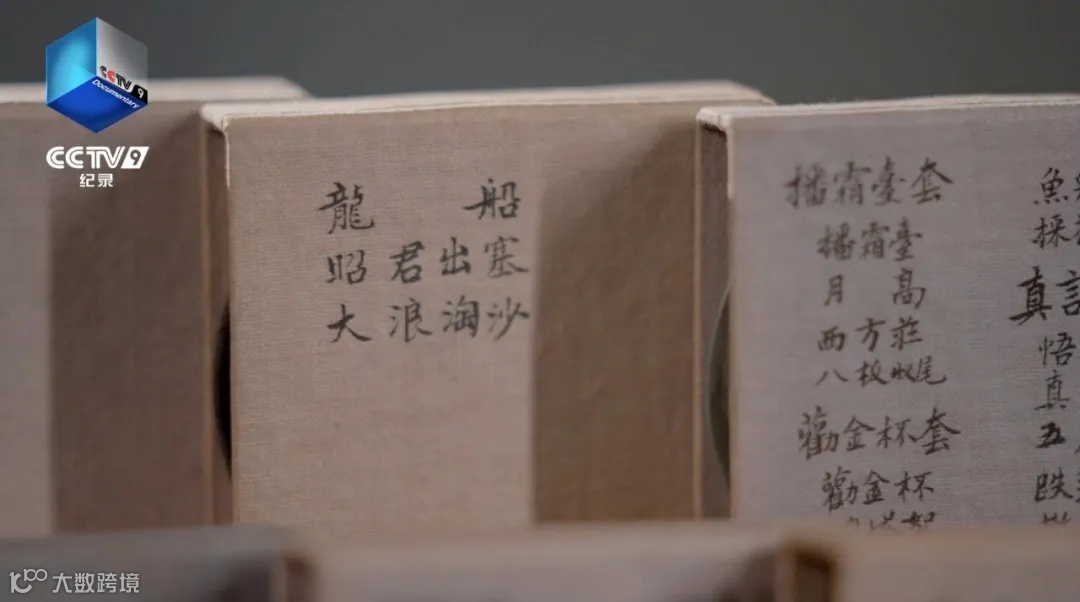 CCTV 9
Documentary
CCTV 9
纪录
龍船
昭君出塞
大浪淘沙
播霜臺套
播霜臺
月高
西方莊
八板收尾
勸金杯套
勸金杯
魚
採
真言
悟
真
五
跌
大数跨境